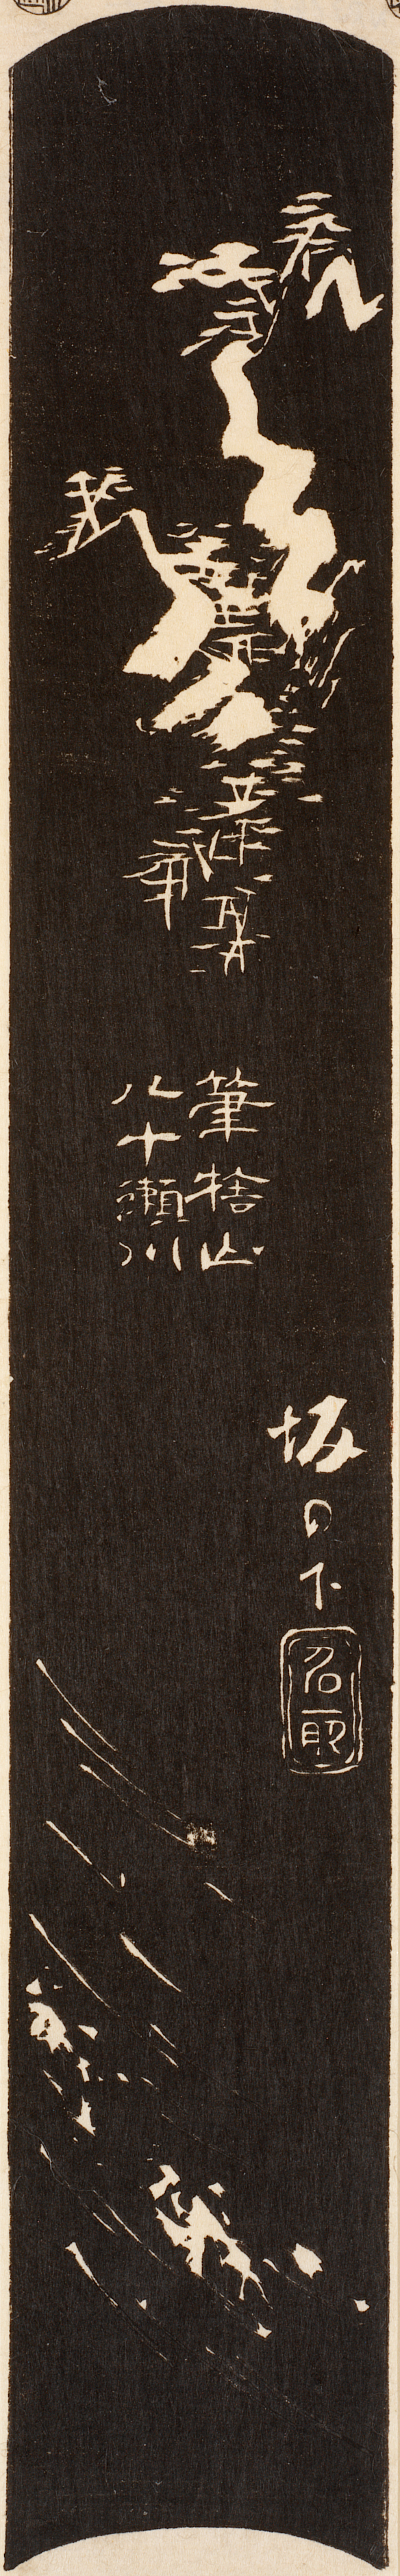 筆捨山
八十瀬川
坂の下
名所